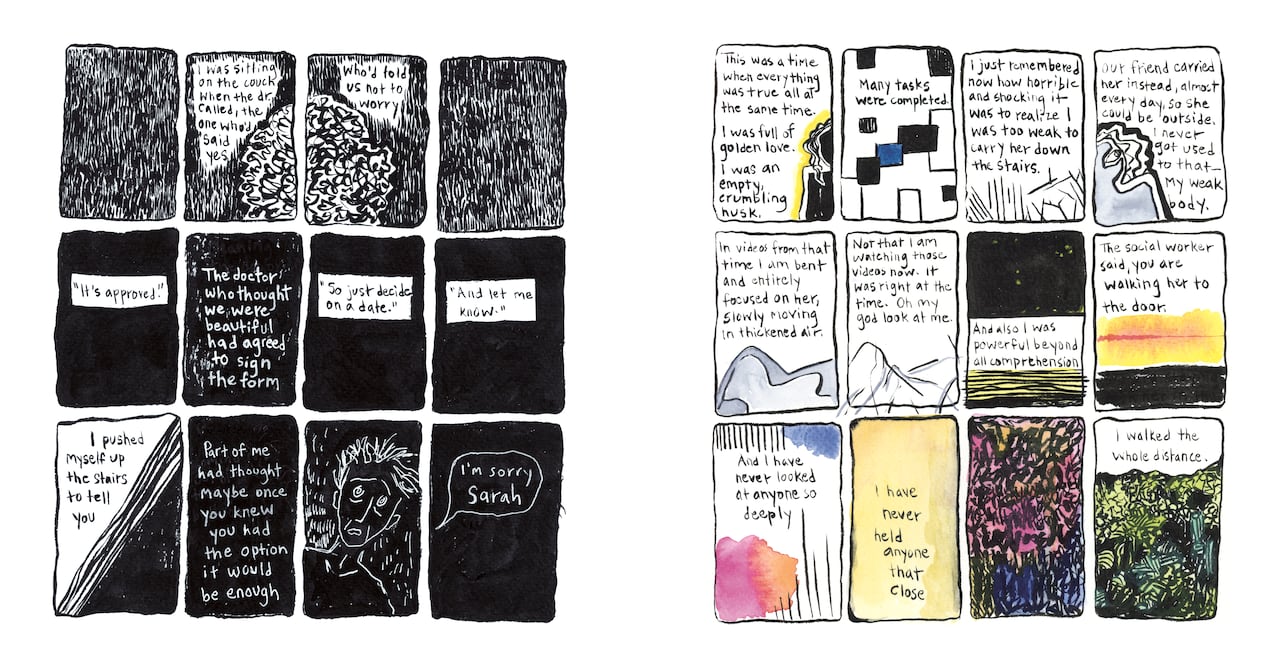 I was sitting
on the couch
when the dr.
called, the
one who'd
said
yes.
Who'd told
us not to
worry
"It's approved."
The doctor
who thought
we were
beautiful
had agreed
to sign
the form
"So just decide
on a date."
"And let me
know."
I pushed
myself up
the stairs
to tell
you
Part of me
had thought
maybe once
you knew
you had
the option
it would
be enough
I'm sorry
Sarah
This was a time
when everything
was true all at
the same time.
I was full of
golden love.
I was an
empty,
crumbling
husk.
Many tasks
were completed.
I just remembered
now how horrible
and shocking it
was to realize I
was too weak to
carry her down
the stairs.
Our friend carried
her instead, almost
every day, so she
could be outside.
I never
got used
to that—
My weak
body.
In videos from that
time I am bent
and entirely
focused on her,
slowly moving
in thickened air.
Not that I am
watching those
videos now. It
was right at the
time. Oh my
god look at me.
And also I was
powerful beyond
all comprehension
The social worker
said, you are
walking her to
the door.
And I have
never looked
at anyone so
deeply
I have
never
held
anyone
that
close
I walked the
whole distance.